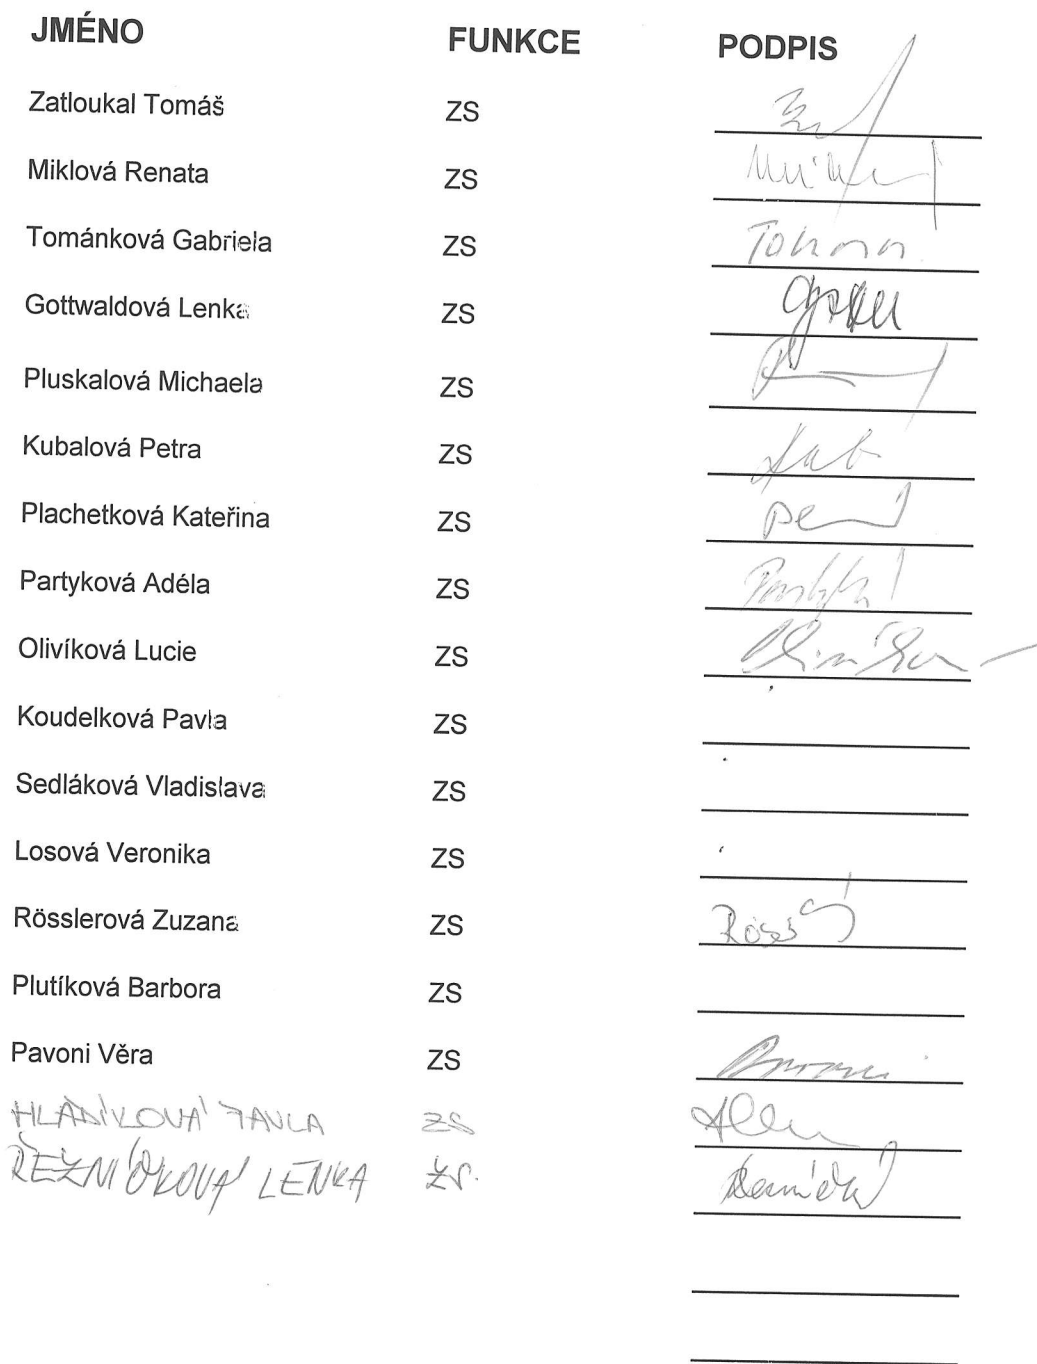 JMÉNO FUNKCE PODPIS
Zatloukal Tomáš ZS
Miklová Renata ZS
Tománková Gabriela ZS
Gottwaldová Lenka ZS
Pluskalová Michaela ZS
Kubalová Petra ZS
Plachetková Kateřina ZS
Partyková Adéla ZS
Olivíková Lucie ZS
Koudelková Pavla ZS
Sedláková Vladislava ZS
Losová Veronika ZS
Rösslerová Zuzana ZS
Plutíková Barbora ZS
Pavoni Věra ZS
HLADÍKOVÁ PAVLA ZS
ŘEZNÍČKOVÁ LENKA ZS.